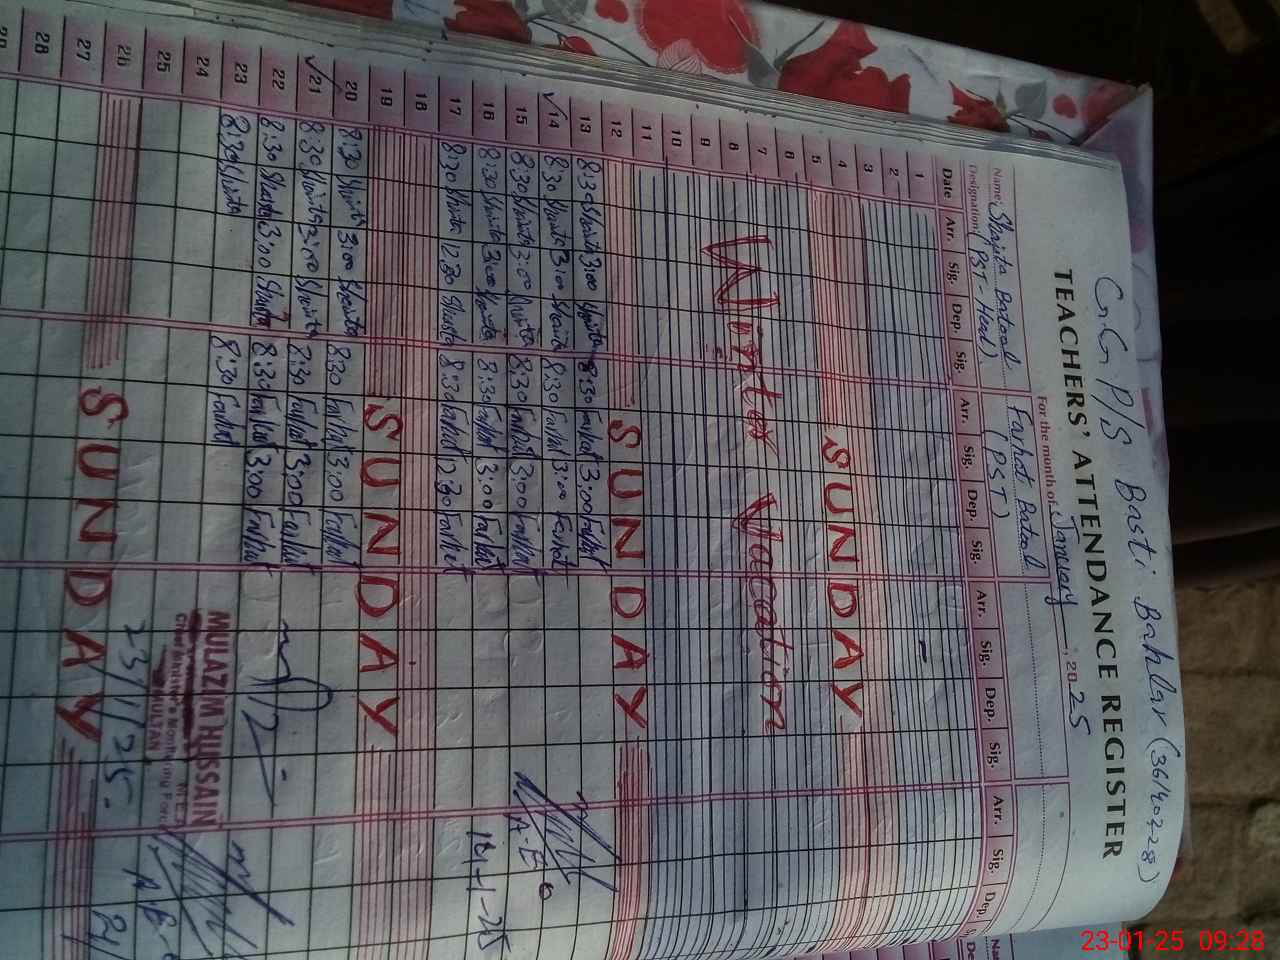 G.G P/S Basti Bahlar (36140228)
TEACHERS' ATTENDANCE REGISTER
For the month of January, 2025
Name: Shajita Batool
Farhat Batool
Designation: (PST. Head)
(PST)
Date Arr. Sig. Dep. Sig. Arr. Sig. Dep. Sig. Arr. Sig. Dep. Sig. Arr. Sig. Dep.
1
2
3
4
5 SUNDAY
6
7 Winter Vacation
8
9
10
11
12 SUNDAY
13 8:30 3:00 8:30 Farhat 3:00 Farhat
14 8:30 3:00 8:30 Farhat 3:00 Farhat
15 8:30 3:00 8:30 Farhat 3:00 Farhat
A.E.O
16 8:30 3:00 8:30 Farhat 3:00 Farhat
14-1-25
17 8:30 12:30 8:30 Farhat 12:30 Farhat
18
19 SUNDAY
20 8:30 3:00 8:30 Farhat 3:00 Farhat
21 8:30 3:00 8:30 Farhat 3:00 Farhat
22 8:30 3:00 8:30 Farhat 3:00 Farhat
23 8:30 8:30 Farhat
24
MULAZIM HUSSAIN
25
Chief Minister's Monitoring Force
MULTAN
26
23/1/25.
27 SUNDAY
28
29
23-01-25 09:28